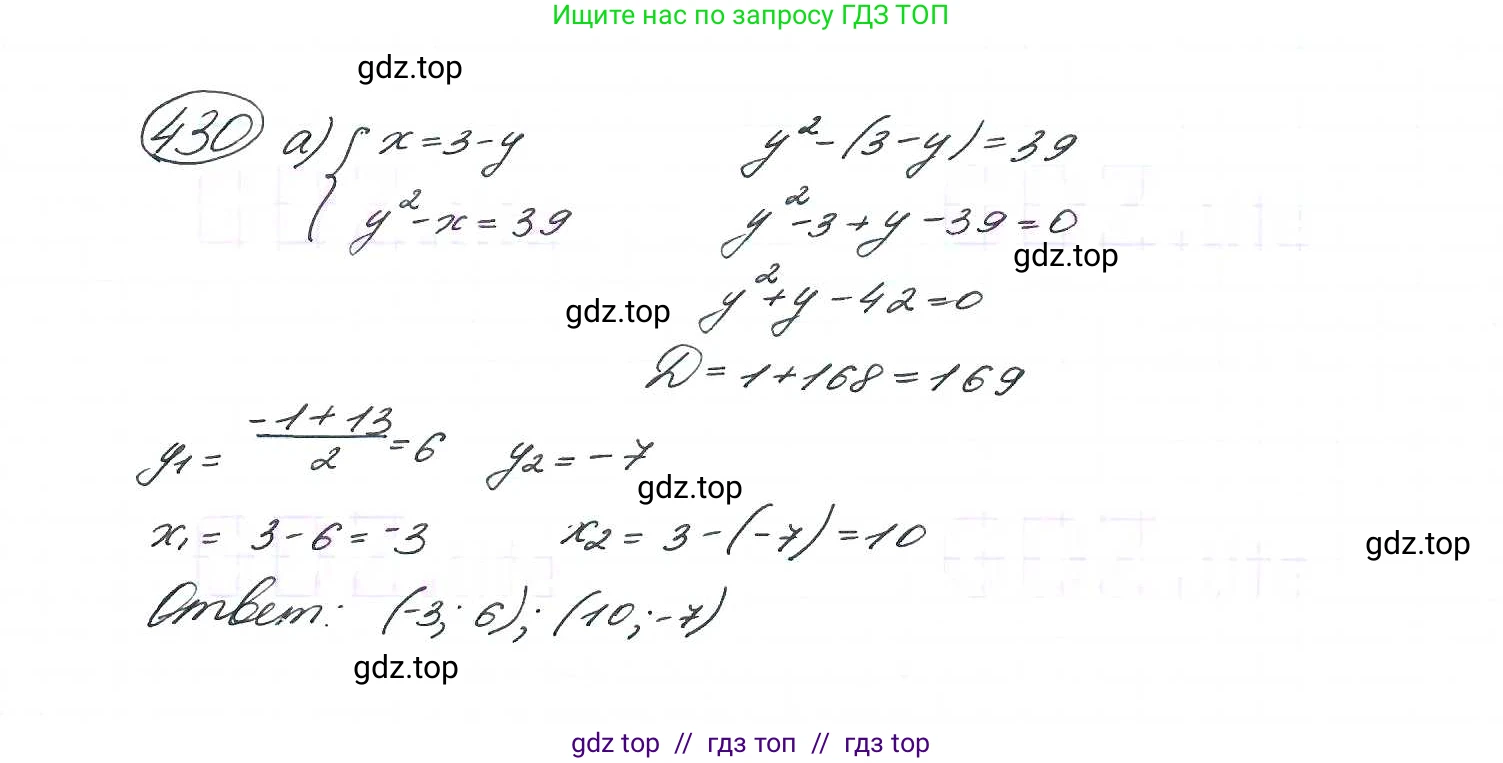 Ищите нас по запросу ГДЗ ТОП
gdz.top
430 а) { x = 3 - y
y² - (3 - y) = 39
y² - x = 39
y² - 3 + y - 39 = 0
gdz.top
y² + y - 42 = 0
gdz.top
D = 1 + 168 = 169
y₁ = (-1 + 13)/2 = 6 y₂ = -7
gdz.top
x₁ = 3 - 6 = -3 x₂ = 3 - (-7) = 10
gdz.top
Ответ: (-3; 6); (10; -7)
gdz.top
gdz top // гдз топ // гдз top